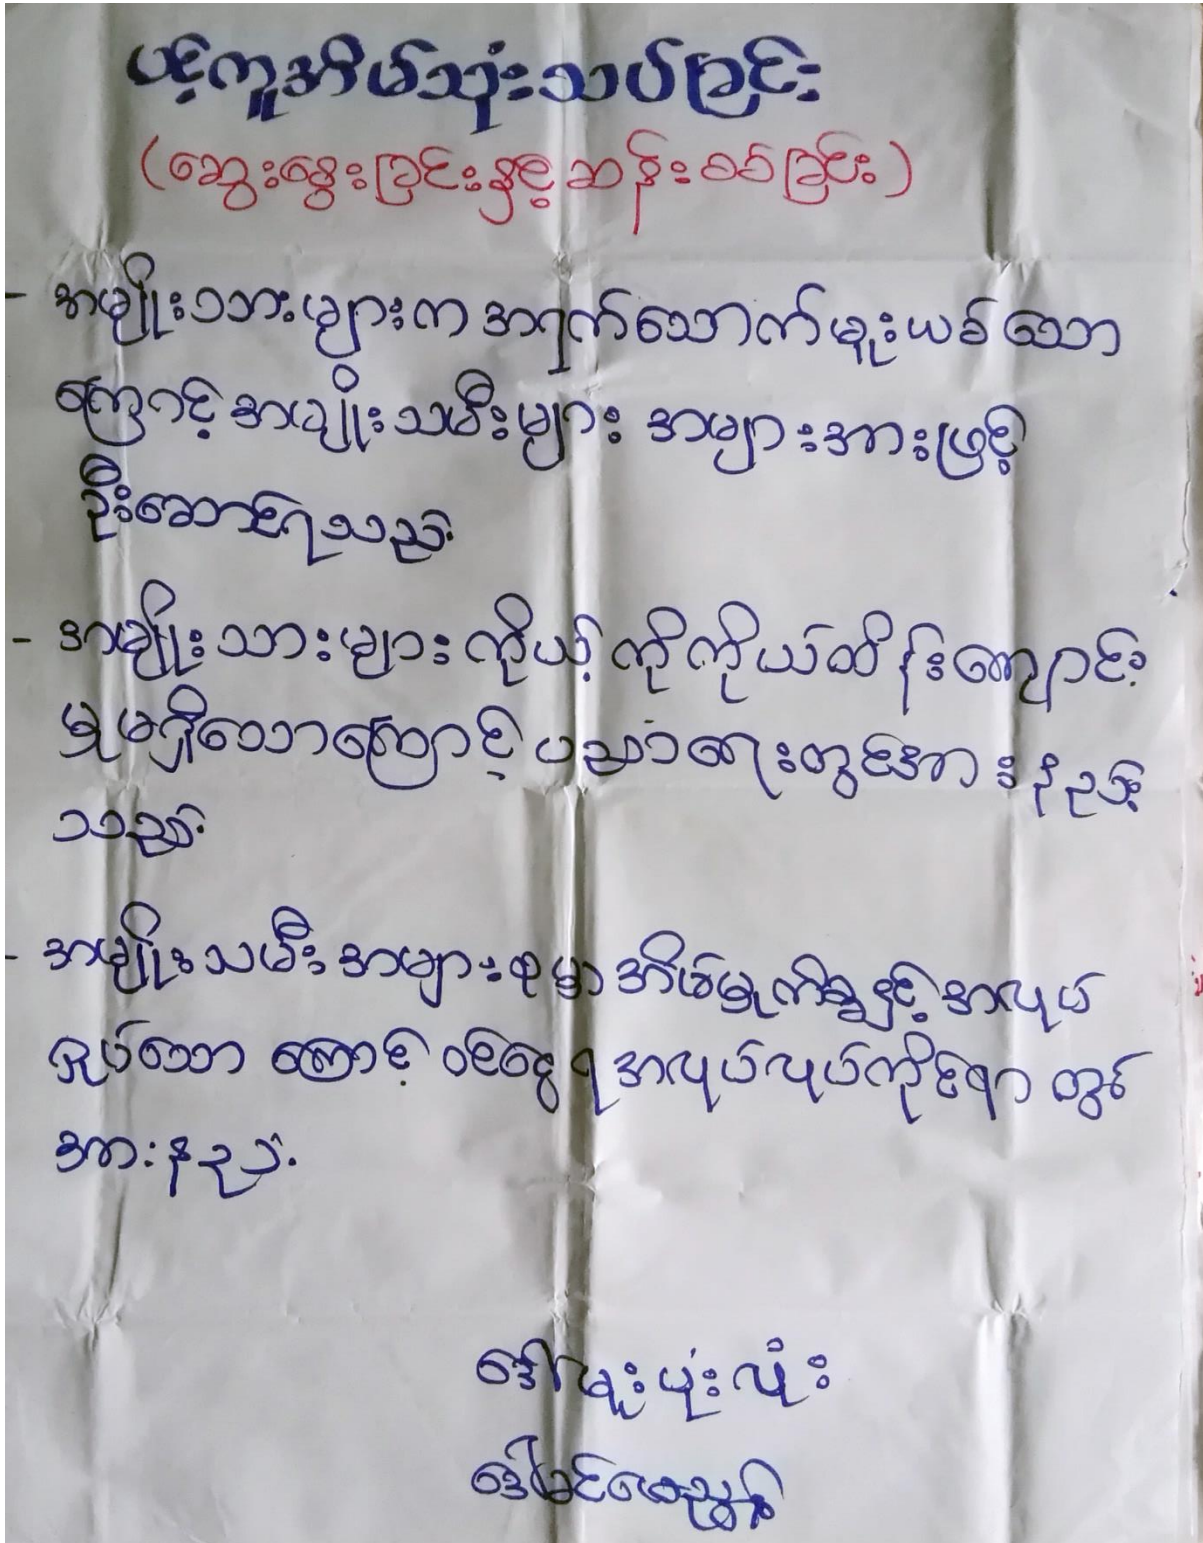 ပင့်ကူအိမ်သုံးသပ်ခြင်း
(ဆွေးနွေးခြင်းနှင့်ဆန်းစစ်ခြင်း)
- အမျိုးသားများက အရက်သောက်မူးယစ်သော
ကြောင့် အမျိုးသမီးများ အများအားဖြင့်
ဦးဆောင်ရသည်
- အမျိုးသားများ ကိုယ့်ကိုကိုယ်ထိန်းကျောင်း
မှုမရှိသောကြောင့် ပညာရေးတွင်အားနည်း
သည်
- အမျိုးသမီးအများစုမှာ အိမ်မှုကိစ္စနှင့် အလုပ်
ရှုပ်သော ကြောင့် ဝင်ငွေရအလုပ်လုပ်ကိုင်ရာ တွင်
အားနည်း
ဒေါ်မူးပုံးလုံး
ဒေါ်ခင်ဆွေညွန့်